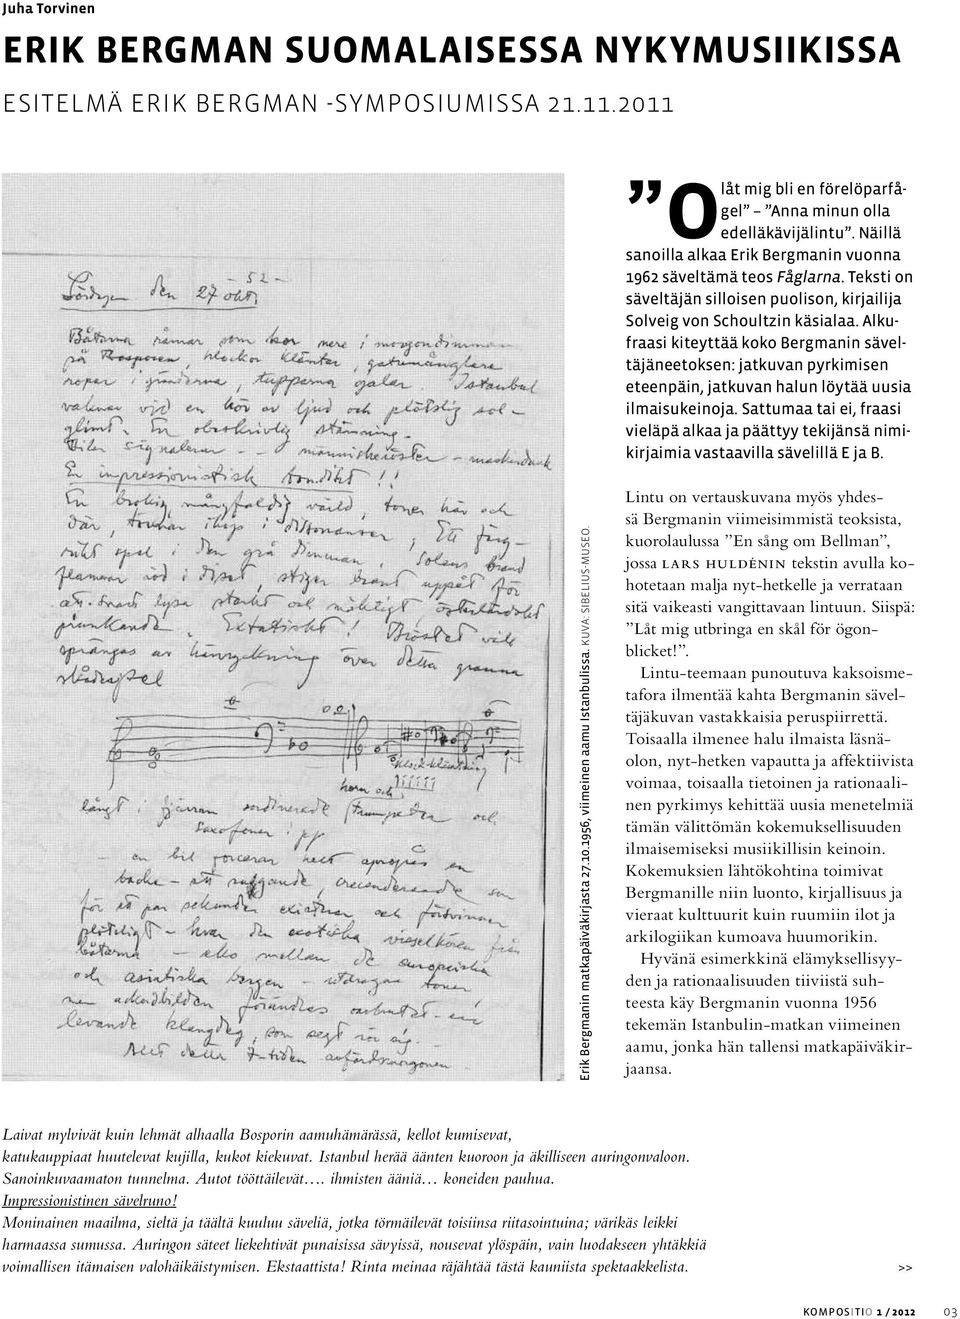 Juha Torvinen
ERIK BERGMAN SUOMALAISESSA NYKYMUSIIKISSA
ESITELMÄ ERIK BERGMAN -SYMPOSIUMISSA 21.11.2011
”O låt mig bli en förelöparfå-
gel” – ”Anna minun olla
edelläkävijälintu”. Näillä
sanoilla alkaa Erik Bergmanin vuonna
1962 säveltämä teos Fåglarna. Teksti on
säveltäjän silloisen puolison, kirjailija
Solveig von Schoultzin käsialaa. Alku-
fraasi kiteyttää koko Bergmanin sävel-
täjäneetoksen: jatkuvan pyrkimisen
eteenpäin, jatkuvan halun löytää uusia
ilmaisukeinoja. Sattumaa tai ei, fraasi
vieläpä alkaa ja päättyy tekijänsä nimi-
kirjaimia vastaavilla sävelillä E ja B.
Lintu on vertauskuvana myös yhdes-
sä Bergmanin viimeisimmistä teoksista,
kuorolaulussa ”En sång om Bellman”,
jossa LARS HULDÉNIN tekstin avulla ko-
hotetaan malja nyt-hetkelle ja verrataan
sitä vaikeasti vangittavaan lintuun. Siispä:
”Låt mig utbringa en skål för ögon-
blicket!”.
Lintu-teemaan punoutuva kaksoisme-
tafora ilmentää kahta Bergmanin sävel-
täjäkuvan vastakkaisia peruspiirrettä.
Toisaalla ilmenee halu ilmaista läsnä-
olon, nyt-hetken vapautta ja affektiivista
voimaa, toisaalla tietoinen ja rationaali-
nen pyrkimys kehittää uusia menetelmiä
tämän välittömän kokemuksellisuuden
ilmaisemiseksi musiikillisin keinoin.
Kokemuksien lähtökohtina toimivat
Bergmanille niin luonto, kirjallisuus ja
vieraat kulttuurit kuin ruumiin ilot ja
arkilogiikan kumoava huumorikin.
Hyvänä esimerkkinä elämyksellisyy-
den ja rationaalisuuden tiiviistä suh-
teesta käy Bergmanin vuonna 1956
tekemän Istanbulin-matkan viimeinen
aamu, jonka hän tallensi matkapäiväkir-
jaansa.
Lördagen den 27 okt.
Båtarna råmar som kor nere i morgondimman
på Bosporen, klockor klämtar, gatumånglare
ropar i gränderna, tupparna galar. Istanbul
vaknar vid en kör av ljud och plötslig sol-
glimt. En obeskrivlig stämning.
Bilar signalerar - - människoröster - maskindunk
En impressionistisk tondikt!!
En brokig, mångfaldig värld, toner här och
där, törnar ihop i dissonanser, Ett färg-
rikt spel i den grå dimman, Solens brand
flammar röd i diset, stiger brant uppåt för
att snart lysa starkt och mäktigt österländskt
prunkande. Extatiskt! Bröstet vill
sprängas av hänryckning över detta granna
skådespel
klock-klämtning
horn och
långt i fjärran sordinerade trumpeter och
saxofoner i pp
- en bil forcerar helt apropos en
backe - ett suggande, crescenderande som
för ett par sekunder existerar och försvinner
plötsligt - hvar den exotiska visselkören från
båtarna - eko mellan de europeiska
och asiatiska bergen - utdragna toner,
ackordbilden förändras oavbrutet - en
levande klangdeg, som segt rör sig.
Allt detta i den
Erik Bergmanin matkapäiväkirjasta 27.10.1956, viimeinen aamu Istanbulissa. KUVA: SIBELIUS-MUSEO.
Laivat mylvivät kuin lehmät alhaalla Bosporin aamuhämärässä, kellot kumisevat,
katukauppiaat huutelevat kujilla, kukot kiekuvat. Istanbul herää äänten kuoroon ja äkilliseen auringonvaloon.
Sanoinkuvaamaton tunnelma. Autot tööttäilevät…. ihmisten ääniä… koneiden pauhua.
Impressionistinen sävelruno!
Moninainen maailma, sieltä ja täältä kuuluu säveliä, jotka törmäilevät toisiinsa riitasointuina; värikäs leikki
harmaassa sumussa. Auringon säteet liekehtivät punaisissa sävyissä, nousevat ylöspäin, vain luodakseen yhtäkkiä
voimallisen itämaisen valohäikäistymisen. Ekstaattista! Rinta meinaa räjähtää tästä kauniista spektaakkelista.
>>
KOMPOSITIO 1 / 2012 03